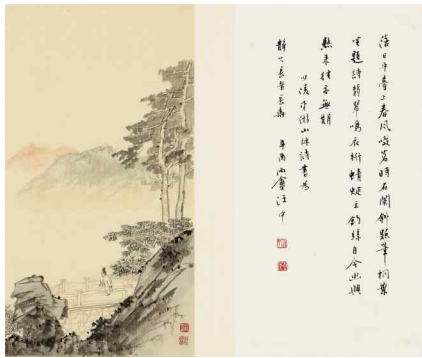 落日平臺上春風啜茗時石闌斜點筆桐葉
坐題詩翡翠鳴衣桁蜻蜓立釣絲自今幽興
熟來往亦無期
少陵游山林詩書為
靜長者
辛酉雨盦汪中